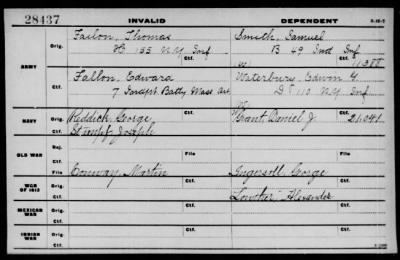 28437
INVALID
DEPENDENT
3-10-7
ARMY
Orig.
Fallon, Thomas
H 155 N.Y. Inf
Ctf.
Smith, Samuel
B 49 Ind Inf
W
Orig.
Fallon, Edward
7 Batty Mass Art
Ctf.
Waterbury, Edwin G.
D 110 N.Y. Inf
NAVY
Orig.
Reddick, George
Ctf.
Stumpf, Joseph
W
Grant Daniel J
Ctf.
OLD WAR
File
File
Ctf.
Ctf.
WAR OF 1812
Orig.
Conway Martin
Ctf.
Ingersoll George
Ctf.
Lowther Alexander
MEXICAN WAR
Orig.
Ctf.
Orig.
Ctf.
INDIAN WAR
Orig.
Ctf.
Orig.
Ctf.